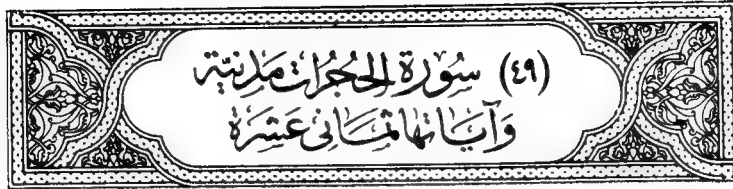 (٤٩) سُورَةُ الْحُجُرَاتِ مَدَنِيَّة
وَآيَاتهَا ثَمَانِي عَشَرَة